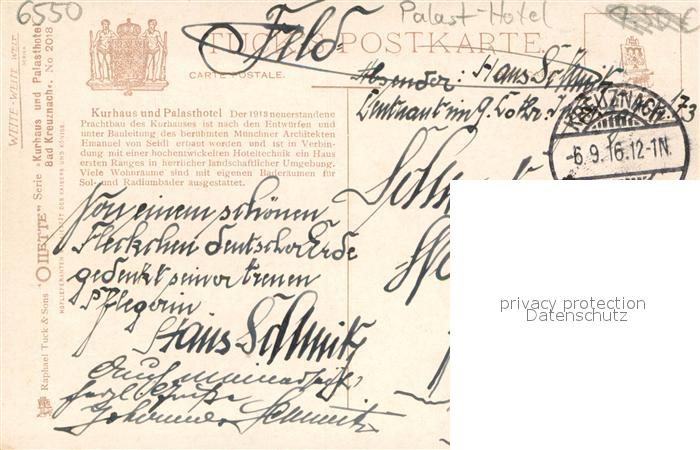 6550
Palast-Hotel
Feld
TUCK'S POSTKARTE.
CARTE POSTALE.
Absender: Hans Schmitz
Leutnant im 9. Lothr. 173
KREUZNACH.
-6.9.16.12-1N.
WEITE-WEITE WELT
Raphael Tuck & Sons "OILETTE" Serie »Kurhaus und Palasthotel Bad Kreuznach«. No 2018
HOFLIEFERANTEN MAJESTÄT DES KAISERS UND KÖNIGS.
Kurhaus und Palasthotel Der 1913 neuerstandene
Prachtbau des Kurhauses ist nach den Entwürfen und
unter Bauleitung des berühmten Münchner Architekten
Emanuel von Seidl erbaut worden und ist in Verbin-
dung mit einer hochentwickelten Hoteltechnik ein Haus
ersten Ranges in herrlicher landschaftlicher Umgebung.
Viele Wohnräume sind mit eigenen Baderäumen für
Sol- und Radiumbäder ausgestattet.
Von einem schönen
Fleckchen deutscher Erde
gedenkt seiner treuen
Pflegerin
Hans Schmitz
Auch meinerseits
herzl. Grüße
Johanna Schmitz
Schw
privacy protection
Datenschutz